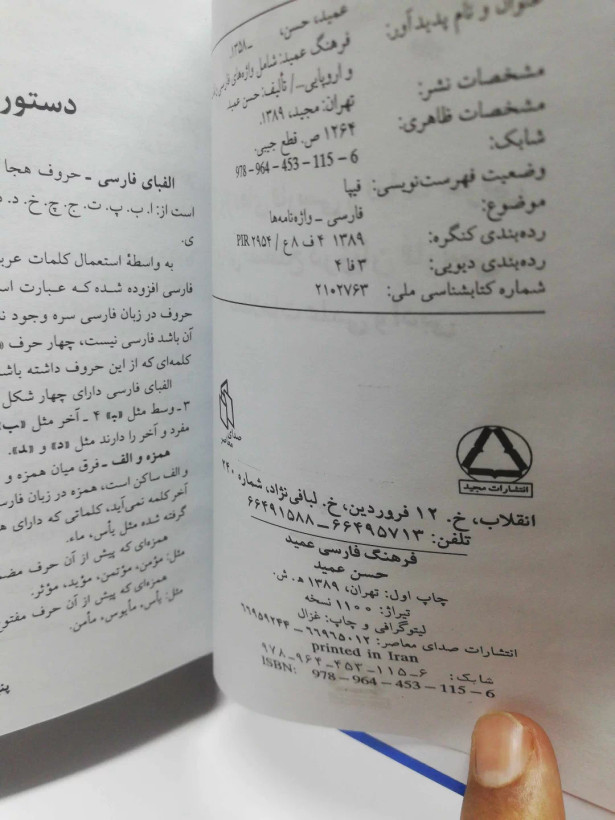 عنوان و نام پدیدآور:
عمید، حسن، ـ ۱۳۵۸.
فرهنگ عمید: شامل واژه‌های فارسی
و اروپایی.../ تألیف: حسن عمید
مشخصات نشر: تهران: مجید، ۱۳۸۹.
مشخصات ظاهری: ۱۲۶۴ ص. قطع جیبی.
شابک: 978-964-453-115-6
وضعیت فهرست‌نویسی: فیپا
موضوع: فارسی ـ واژه‌نامه‌ها
رده‌بندی کنگره: ۱۳۸۹ ۴ ف ۸ ع / PIR ۲۹۵۴
رده‌بندی دیویی: ۴ فا ۳
شماره کتابشناسی ملی: ۲۱۰۲۷۶۳
صدای معاصر
انتشارات مجید
انقلاب، خ. ۱۲ فروردین، خ. لبافی‌نژاد، شماره ۲۴۰
تلفن: ۶۶۴۹۵۷۱۳ ـ ۶۶۴۹۱۵۸۸
فرهنگ فارسی عمید
حسن عمید
چاپ اول: تهران، ۱۳۸۹ ه‍. ش.
تیراژ: ۱۱۰۰ نسخه
لیتوگرافی و چاپ: غزال
انتشارات صدای معاصر: ۶۶۹۶۵۰۱۲ - ۶۶۹۵۹۲۴۴
printed in Iran
شابک: ۶-۱۱۵-۴۵۳-۹۶۴-۹۷۸
ISBN: 978-964-453-115-6
دستور
الفبای فارسی ـ حروف هجا
است از: ا. ب. پ. ت. ج. چ. خ. د.
ی.
به واسطهٔ استعمال کلمات
فارسی افزوده شده که عبارت
حروف در زبان فارسی سره وجود
آن باشد فارسی نیست، چهار حرف
کلمه‌ای که از این حروف داشته باشد
الفبای فارسی دارای چهار شکل
۳ ـ وسط مثل «ـبـ» ۴ ـ آخر مثل «ـب»
مفرد و آخر را دارند مثل «د» و «ـد».
همزه و الف ـ فرق میان همزه و
و الف ساکن است، همزه در زبان
آخر کلمه نمی‌آید، کلماتی که دارای
گرفته شده مثل یأس، ماء.
همزه‌ای که پیش از آن حرف
مثل: مؤمن، مؤتمن، مؤید، مؤثر.
همزه‌ای که پیش از آن حرف مفتوح
مثل: یأس، مأیوس، مأمن.